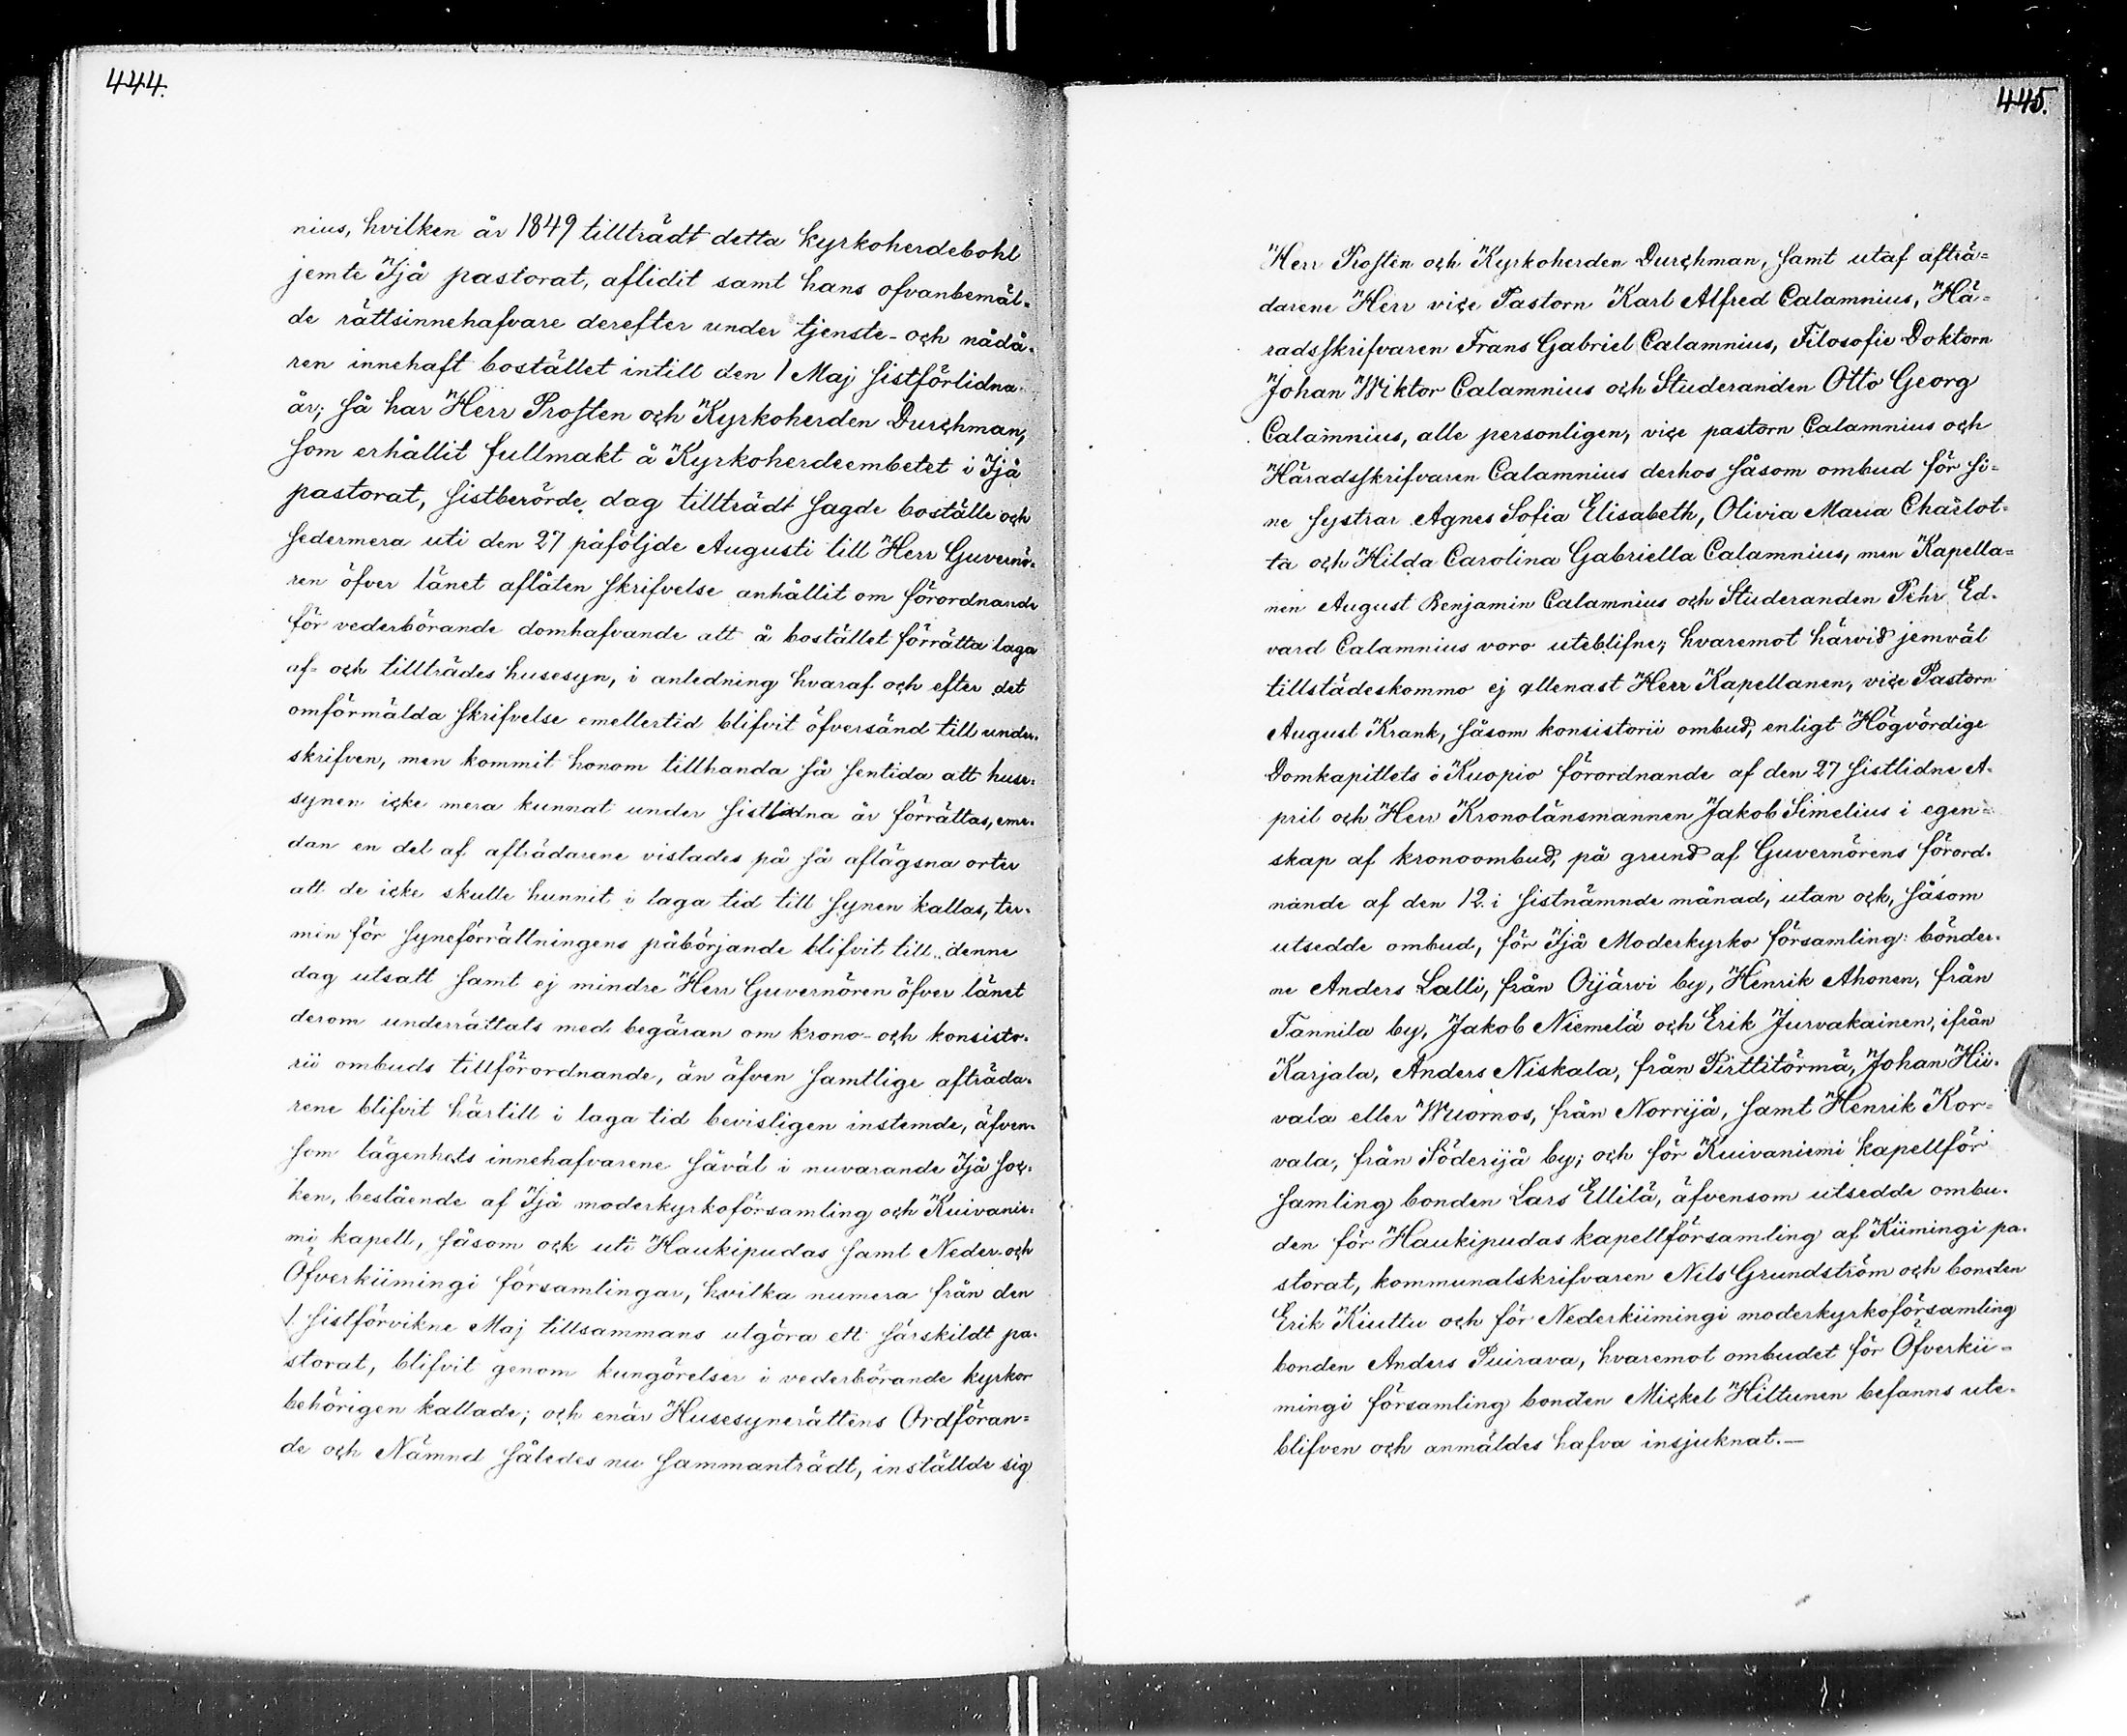 444.
nius, hvilken år 1849 tillträdt detta kyrkoherdebohl
jemte Ijå pastorat, aflidit samt hans ofvanbemäl-
de rättsinnehafvare derefter under tjenste- och nådå-
ren innehaft bostället intill den 1 Maj sistförlidna
år; så har Herr Prosten och Kyrkoherden Durchman,
som erhållit fullmakt å Kyrkoherdeembetet i Ijå
pastorat, sistberörde dag tillträdt sagde boställe och
sedermera uti den 27 påföljde Augusti till Herr Guvernö-
ren öfver länet aflåten skrifvelse anhållit om förordnande
för vederbörande domhafvande att å bostället förrätta laga
af- och tillträdes husesyn, i anledning hvaraf och efter det
omförmälda skrifvelse emellertid blifvit öfversänd till under-
skrifven, men kommit honom tillhanda så sentida att huse-
synen icke mera kunnat under sistlidna år förrättas, eme-
dan en del af afträdarene vistades på så aflägsna orter
att de icke skulle hunnit i laga tid till synen kallas, ter-
min för syneförrättningens påbörjande blifvit till denne
dag utsatt samt ej mindre Herr Guvernören öfver länet
derom underrättats med begäran om krono- och konsisto-
rii ombuds tillförordnande, än äfven samtlige afträda-
rene blifvit härtill i laga tid bevisligen instemde, äfven-
som lägenhets innehafvarene såväl i nuvarande Ijå soc-
ken, bestående af Ijå moderkyrkoförsamling och Kuivanie-
mi kapell, såsom ock uti Haukipudas samt Neder- och
Öfverkiimingi församlingar, hvilka numera från den
1 sistförvikne Maj tillsammans utgöra ett särskildt pa-
storat, blifvit genom kungörelser i vederbörande kyrkor
behörigen kallade; och enär Husesynerättens Ordföran-
de och Nämnd således nu sammanträdt, inställde sig
445.
Herr Prosten och Kyrkoherden Durchman, samt utaf afträ-
darene Herr vice Pastorn Karl Alfred Calamnius, Hä-
radsskrifvaren Frans Gabriel Calamnius, Filosofie Doktorn
Johan Wiktor Calamnius och Studeranden Otto Georg
Calamnius, alle personligen, vice pastorn Calamnius och
Häradsskrifvaren Calamnius derhos såsom ombud för si-
ne systrar Agnes Sofia Elisabeth, Olivia Maria Charlot-
ta och Hilda Carolina Gabriella Calamnius, men Kapella-
nen August Benjamin Calamnius och Studeranden Pehr Ed-
vard Calamnius voro uteblifne; hvaremot härvid jemväl
tillstädeskommo ej allenast Herr Kapellanen, vice Pastorn
August Krank, såsom konsistorii ombud, enligt Högvördige
Domkapitlets i Kuopio förordnande af den 27 sistlidne A-
pril och Herr Kronolänsmannen Jakob Simelius i egen-
skap af kronoombud, på grund af Guvernörens förord-
nande af den 12 i sistnämnde månad, utan ock, såsom
utsedde ombud, för Ijå Moderkyrko församling: bönder-
ne Anders Lalli, från Oijärvi by, Henrik Ahonen, från
Tannila by, Jakob Niemelä och Erik Jurvakainen, ifrån
Karjala, Anders Niskala, från Pirttitörmä, Johan Hii-
vala eller Wuornos, från Norrijå, samt Henrik Kor-
vala, från Söderijå by; och för Kuivaniemi kapellför
samling bonden Lars Ellilä, äfvensom utsedde ombu-
den för Haukipudas kapellförsamling af Kiimingi pa-
storat, kommunalskrifvaren Nils Grundström och bonden
Erik Kiuttu och för Nederkiimingi moderkyrkoförsamling
bonden Anders Puirava, hvaremot ombudet för Öfverkii-
mingi församling bonden Mickel Hiltunen befanns ute-
blifven och anmäldes hafva insjuknat.—